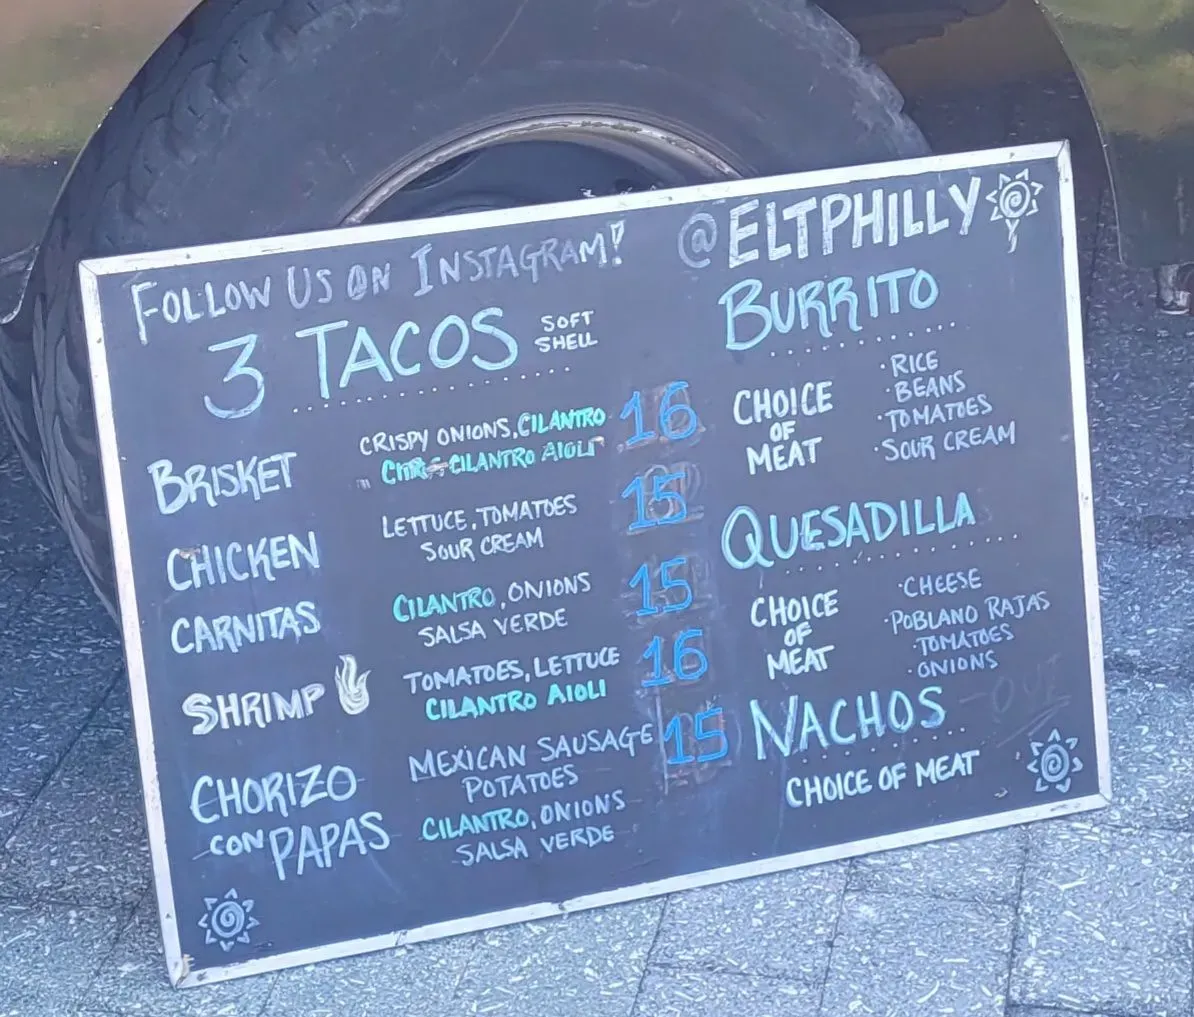 FOLLOW US ON INSTAGRAM! @ELTPHILLY
3 TACOS SOFT SHELL
BRISKET CRISPY ONIONS, CILANTRO 16
CILANTRO AIOLI
CHICKEN LETTUCE, TOMATOES 15
SOUR CREAM
CARNITAS CILANTRO, ONIONS 15
SALSA VERDE
SHRIMP TOMATOES, LETTUCE 16
CILANTRO AIOLI
CHORIZO MEXICAN SAUSAGE 15
POTATOES
CON PAPAS CILANTRO, ONIONS
SALSA VERDE
BURRITO
CHOICE OF MEAT
· RICE
· BEANS
· TOMATOES
· SOUR CREAM
QUESADILLA
CHOICE OF MEAT
· CHEESE
· POBLANO RAJAS
· TOMATOES
· ONIONS
NACHOS - OUT
CHOICE OF MEAT